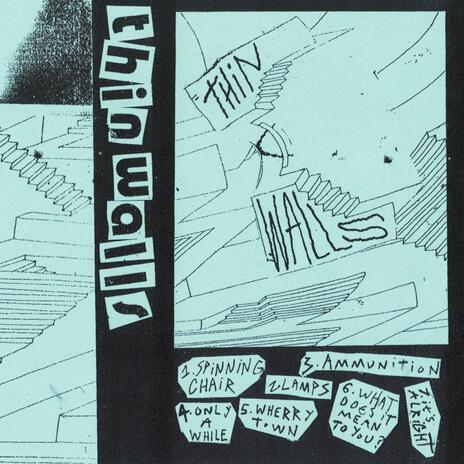 thin walls
THIN
WALLS
1. SPINNING
CHAIR
2. LAMPS
3. AMMUNITION
4. ONLY
A
WHILE
5. WHERRY
TOWN
6. WHAT
DOES IT
MEAN
TO YOU?
7. IT'S
ALRIGHT